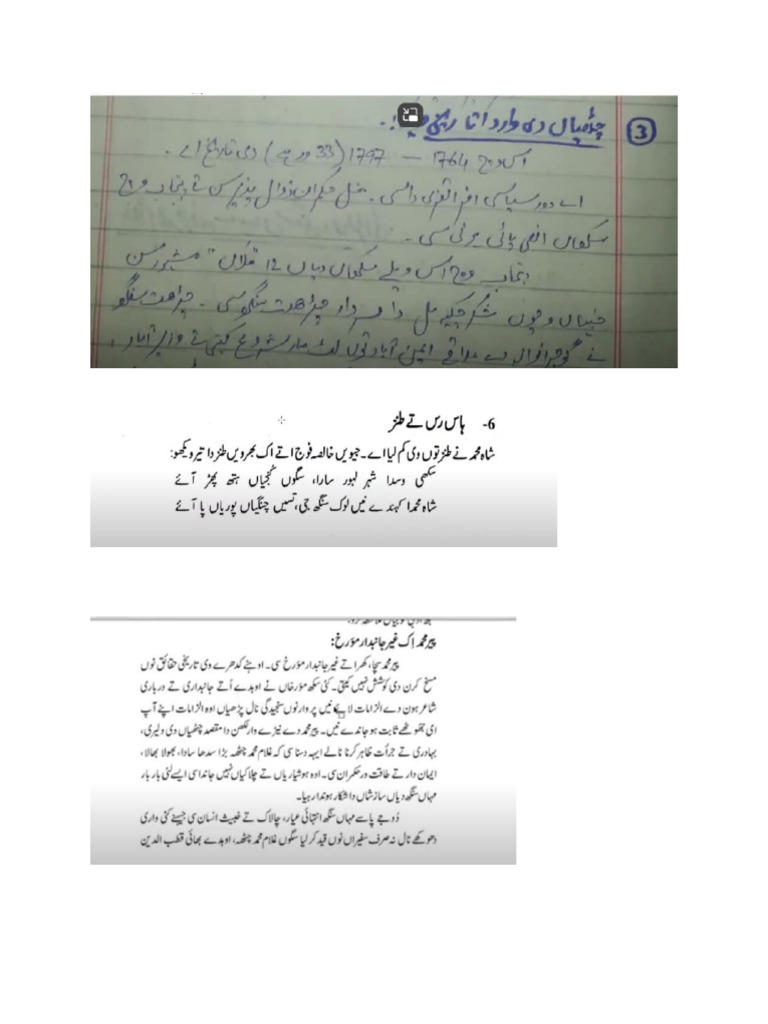 ③ چٹھیاں دی وار دا تاریخی
اس وچ 1764 — 1797 (33 ورہے) دی تاریخ اے۔
اے دور سیاسی افراتفری دا سی۔ مغل حکمران زوال پذیر سن تے پنجاب وچ
سکھاں اَنھی پائی ہوئی سی۔
پنجاب وچ اس ویلے سکھاں دیاں 12 "مثلاں" مشہور سن
جنہاں وچوں شکرچکیہ مثل دا سردار چڑھت سنگھ سی۔ چڑھت سنگھ
نے گوجرانوالہ دے علاقے ایمن آباد توں لٹ مار شروع کیتی تے وزیرآباد،
6- ہاس رس تے طنز
شاہ محمد نے طنز توں وی کم لیا اے۔ جیویں خالصہ فوج اتے اک بھرویں طنز دا تیر ویکھو:
سکھی وسدا شہر لہور سارا، سگوں کُنجیاں ہتھ پھڑ آئے
شاہ محمدا کہندے نیں لوک سنگھ جی، تسیں چنگیاں پوریاں پا آئے
پیر محمد اِک غیر جانبدار مؤرخ:
پیر محمد سچا، کھرا تے غیر جانبدار مؤرخ سی۔ اوہنے کدھرے وی تاریخی حقائق نوں
مسخ کرن دی کوشش نہیں کیتی۔ کئی سکھ مؤرخاں نے اوہدے اُتے جانبداری تے درباری
شاعر ہون دے الزامات لائے نیں پر وار نوں سنجیدگی نال پڑھیاں اوہ الزامات اپنے آپ
ای جھوٹھے ثابت ہو جاندے نیں۔ پیر محمد دے نیڑے وار لکھن دا مقصد چٹھیاں دی دلیری،
بہادری تے جرأت ظاہر کرنا نالے ایہہ دسنا سی کہ غلام محمد چٹھہ بڑا سدھا سادا، بھولا بھالا،
ایمان دار تے طاقت ور حکمران سی۔ اوہ ہوشیاریاں تے چلاکیاں نہیں جاندا سی ایسے لئی بار بار
مہاں سنگھ دیاں سازشاں دا شکار ہوندا رہیا۔
دُوجے پاسے مہاں سنگھ انتہائی عیار، چالاک تے خبیث انسان سی جیہنے کئی واری
دھوکھے نال نہ صرف سفیراں نوں قید کر لیا سگوں غلام محمد چٹھہ، اوہدے بھائی قطب الدین